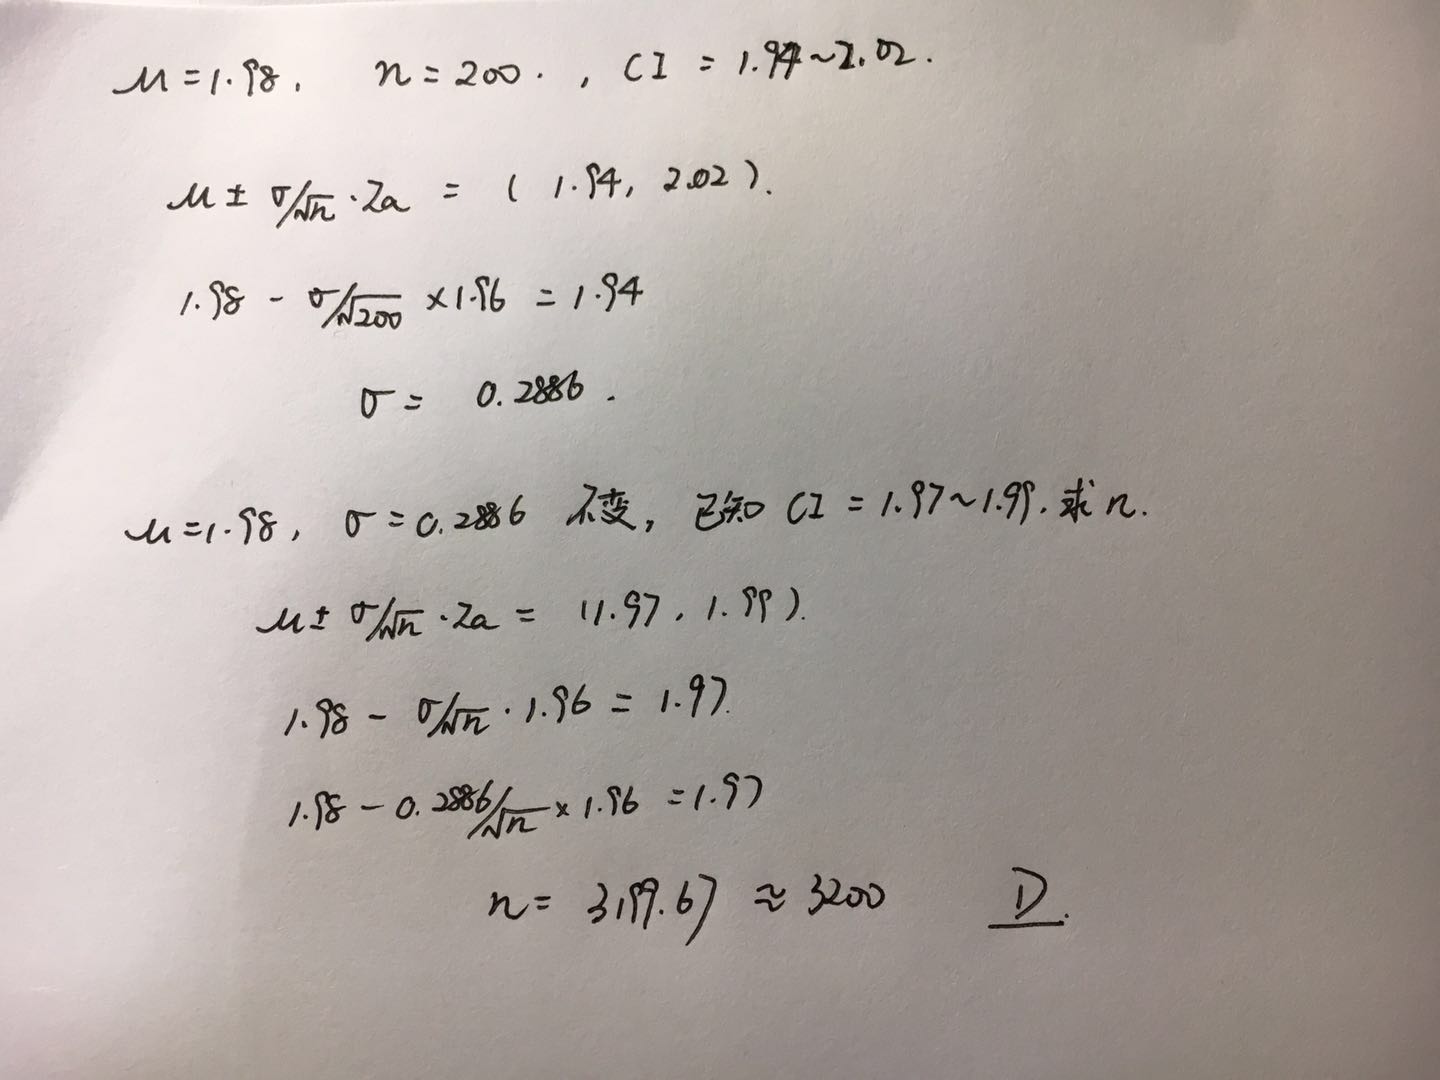 μ=1.98, n=200. , CI = 1.94~2.02.
μ ± σ/√n · Za = ( 1.94, 2.02 ).
1.98 - σ/√200 ×1.96 = 1.94
σ = 0.2886 .
μ=1.98, σ=0.2886 不变, 已知 CI = 1.97~1.99. 求 n.
μ ± σ/√n · Za = (1.97, 1.99).
1.98 - σ/√n · 1.96 = 1.97.
1.98 - 0.2886/√n × 1.96 = 1.97
n = 3199.67 ≈ 3200 D.